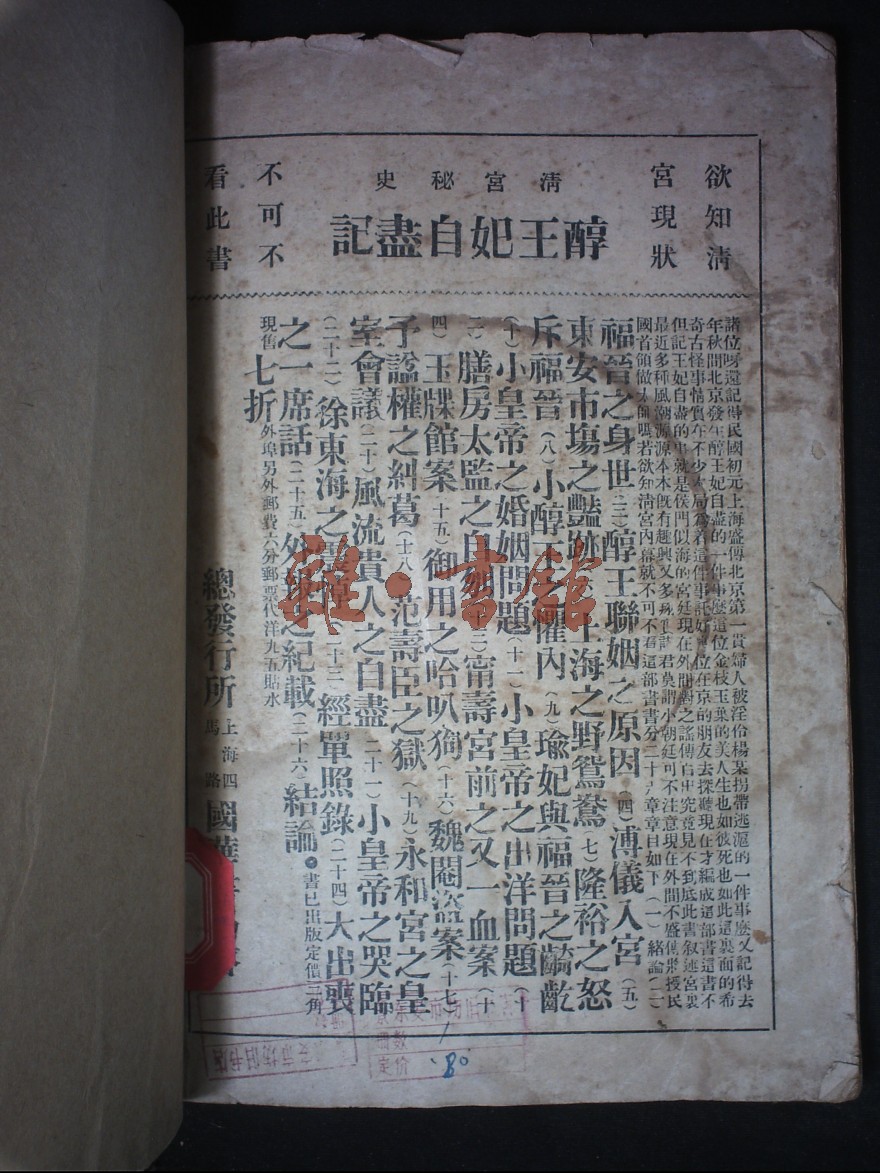 欲知清
宮現狀
清宮秘史
醇王妃自盡記
不可不
看此書
諸位呀還記得民國初元上海盛傳北京第一貴婦人被淫伶楊某拐帶逃滬的一件事麼又記得去
年秋間北京發生醇王妃自盡的一件事麼這位金枝玉葉的美人生也如彼死也如此這裏面的希
奇古怪事情實在不少本局為着這件事託好位在京的朋友去探聽現在才編成這部書這書不
但記王妃自盡的事就是侯門似海的宮廷現在外間對之謠傳百出究竟見不到底此書叙述宮裏
最近多種風潮源源本本既有趣興又多君莫謂小朝廷可不注意現在外間不盛傳將授民
國首領做太師嗎若欲知清宮內幕就不可不看這部書書分二十六章章目如下（一）緒論（二）
福晉之身世（三）醇王聯姻之原因（四）溥儀入宮（五）
東安市塲之豔跡上海之野鴛鴦（七）隆裕之怒
斥福晉（八）小醇王之懼內（九）瑜妃與福晉之齮齕
（十）小皇帝之婚姻問題（十一）小皇帝之出洋問題（十
二）膳房太監之自刎（十三）甯壽宮前之又一血案（十
四）玉牒館案（十五）御用之哈叭狗（十六）魏閹盜案（十七）
予諡權之糾葛（十八）范壽臣之獄（十九）永和宮之皇
室會議（二十）風流貴人之自盡（二十一）小皇帝之哭臨
（二十二）徐東海之（二十三）經單照錄（二十四）大出喪
之一席話（二十五）外報之紀載（二十六）結論●書已出版定價三角
現售七折外埠另外郵費六分郵票代洋九五貼水
總發行所上海四馬路國華書局
雜·書館
定价
.80